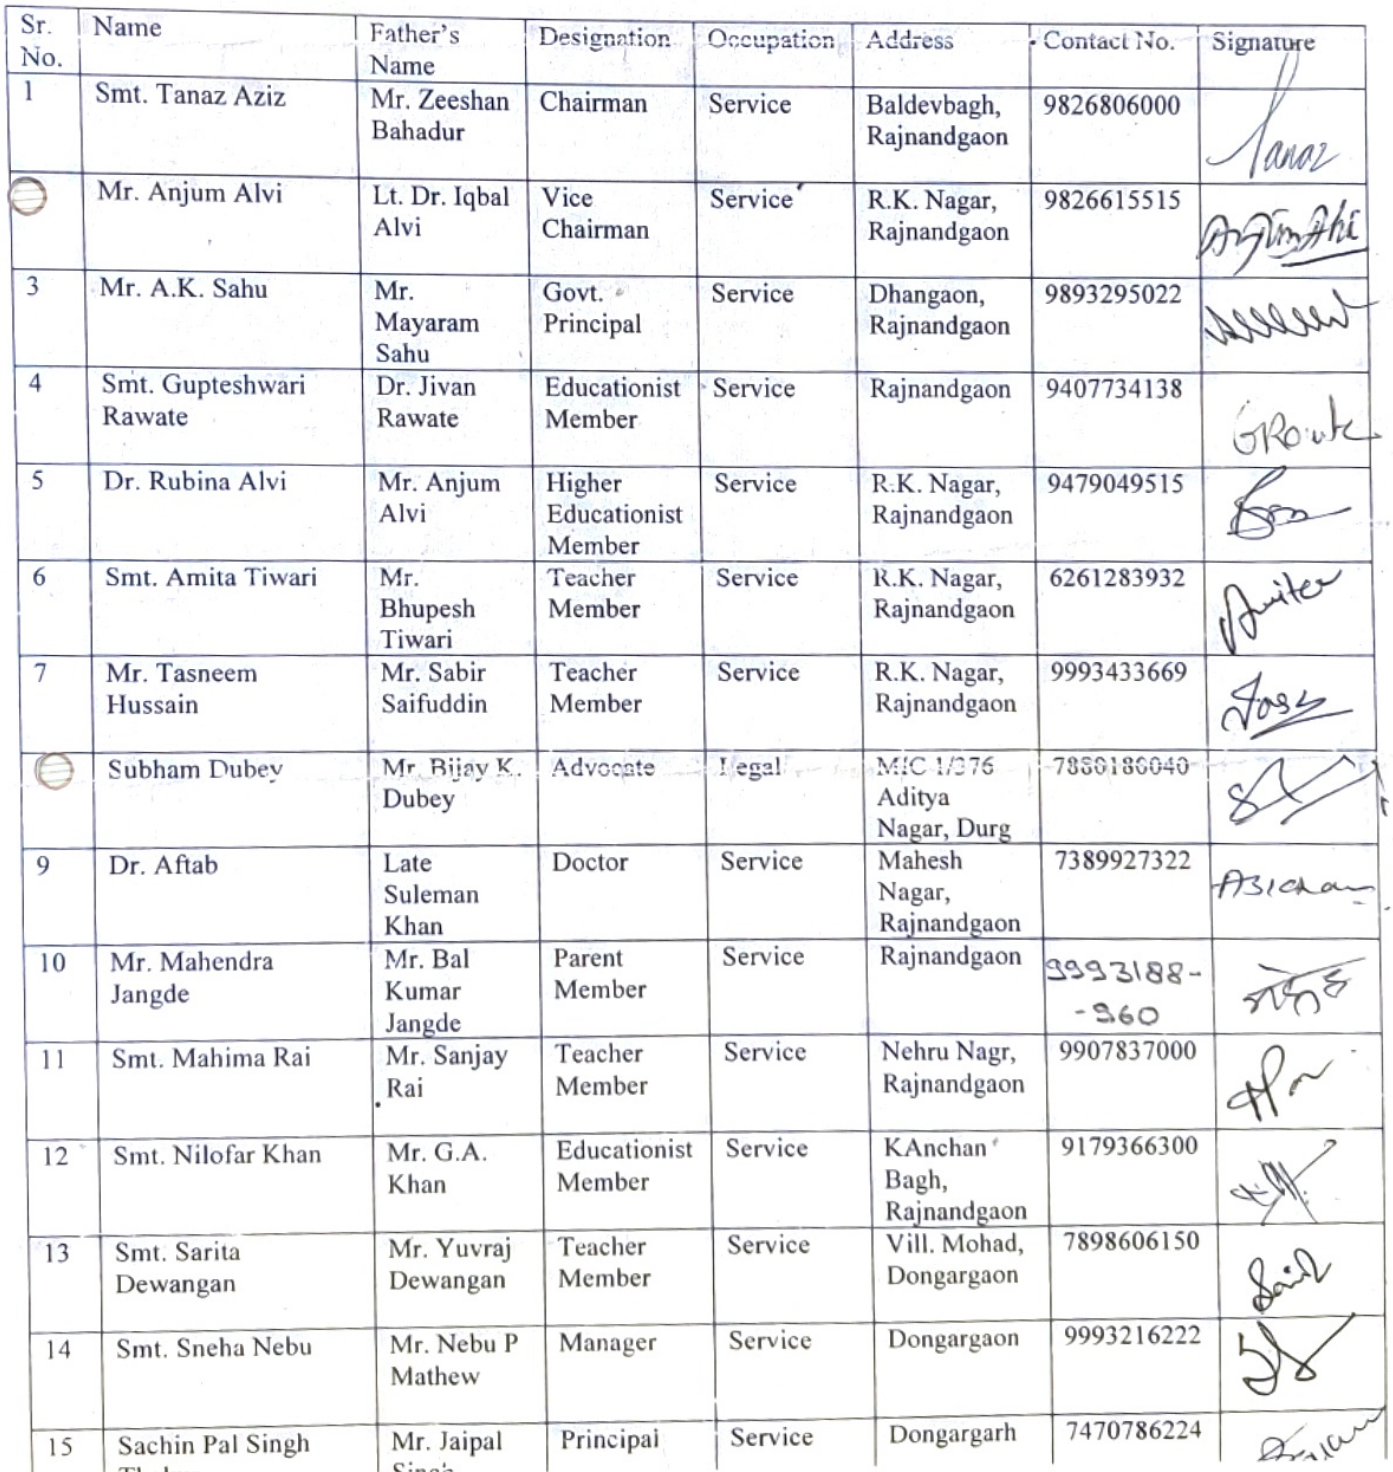 Sr. No. Name Father's Name Designation Occupation Address Contact No. Signature
1 Smt. Tanaz Aziz Mr. Zeeshan Bahadur Chairman Service Baldevbagh, Rajnandgaon 9826806000 Tanaz
Mr. Anjum Alvi Lt. Dr. Iqbal Alvi Vice Chairman Service R.K. Nagar, Rajnandgaon 9826615515
3 Mr. A.K. Sahu Mr. Mayaram Sahu Govt. Principal Service Dhangaon, Rajnandgaon 9893295022
4 Smt. Gupteshwari Rawate Dr. Jivan Rawate Educationist Member Service Rajnandgaon 9407734138
5 Dr. Rubina Alvi Mr. Anjum Alvi Higher Educationist Member Service R.K. Nagar, Rajnandgaon 9479049515
6 Smt. Amita Tiwari Mr. Bhupesh Tiwari Teacher Member Service R.K. Nagar, Rajnandgaon 6261283932
7 Mr. Tasneem Hussain Mr. Sabir Saifuddin Teacher Member Service R.K. Nagar, Rajnandgaon 9993433669
Subham Dubey Mr. Bijay K. Dubey Advocate Legal Aditya Nagar, Durg
9 Dr. Aftab Late Suleman Khan Doctor Service Mahesh Nagar, Rajnandgaon 7389927322
10 Mr. Mahendra Jangde Mr. Bal Kumar Jangde Parent Member Service Rajnandgaon 9993188-
-960
11 Smt. Mahima Rai Mr. Sanjay Rai Teacher Member Service Nehru Nagr, Rajnandgaon 9907837000
12 Smt. Nilofar Khan Mr. G.A. Khan Educationist Member Service KAnchan Bagh, Rajnandgaon 9179366300
13 Smt. Sarita Dewangan Mr. Yuvraj Dewangan Teacher Member Service Vill. Mohad, Dongargaon 7898606150
14 Smt. Sneha Nebu Mr. Nebu P Mathew Manager Service Dongargaon 9993216222
15 Sachin Pal Singh Mr. Jaipal Principal Service Dongargarh 7470786224